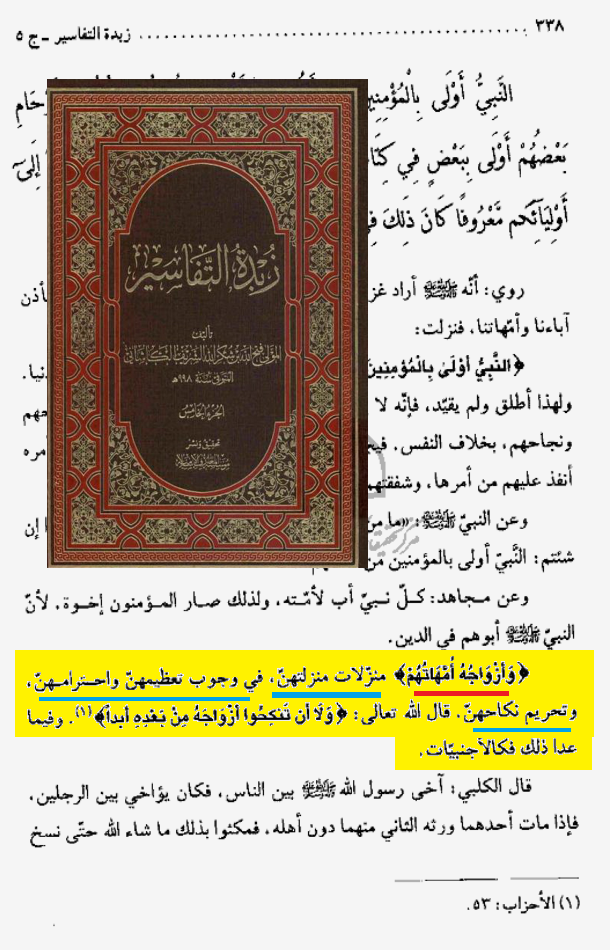 ٣٣٨ زبدة التفاسير ـ ج ٥
النَّبِيُّ أَوْلَى بِالْمُؤْمِنِينَ
بَعْضُهُمْ أَوْلَى بِبَعْضٍ فِي إِلَىٰ
أَوْلِيَائِكُم مَّعْرُوفًا كَانَ ذَلِكَ
زبدة التفاسير
تأليف
المولى فتح الله بن شكر الله الشريف الكاشاني
المتوفى سنة ٩٨٨ هـ
الجزء الخامس
تحقيق ونشر
روي: أنّه ﷺ أراد
آباءنا وأمّهاتنا، فنزلت:
﴿النَّبِيُّ أَوْلَىٰ بِالْمُؤْمِنِينَ
ولهذا أطلق ولم يقيّد، فإنّه لا
ونجاحهم، بخلاف النفس.
أنفذ عليهم من أمرها، وشفقتهم
وعن النبيّ ﷺ: «ما من إن
شئتم: النَّبيّ أولى بالمؤمنين من
وعن مجاهد: كلّ نبيّ أب لأمّته، ولذلك صار المؤمنون إخوة، لأنّ
النبيّ ﷺ أبوهم في الدين.
﴿وَأَزْوَاجُهُ أُمَّهَاتُهُمْ﴾ منزّلات منزلتهنّ، في وجوب تعظيمهنّ واحترامهنّ،
وتحريم نكاحهنّ. قال الله تعالى: ﴿وَلَا أَن تَنكِحُوا أَزْوَاجَهُ مِنْ بَعْدِهِ أَبداً﴾(١). وفيما
عدا ذلك فكالأجنبيّات.
قال الكلبي: آخى رسول الله ﷺ بين الناس، فكان يؤاخي بين الرجلين،
فإذا مات أحدهما ورثه الثاني منهما دون أهله، فمكثوا بذلك ما شاء الله حتّى نسخ
(١) الأحزاب: ٥٣.